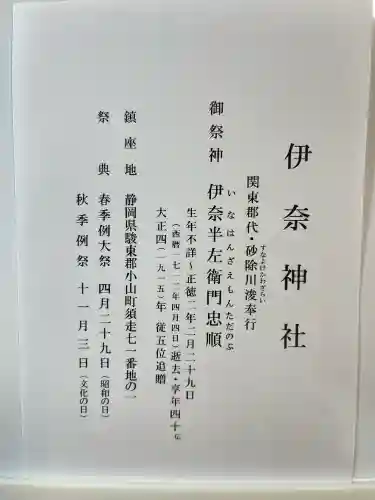 伊奈神社
関東郡代・砂除川浚奉行
すなよけかわざらい
御祭神 伊奈半左衛門忠順
いなはんざえもんただのぶ
生年不詳～正徳二年二月二十九日
(西暦一七一二年四月四日)逝去・享年四十伝
大正四(一九一五)年 従五位追贈
鎮座地 静岡県駿東郡小山町須走七一番地の一
祭典 春季例大祭 四月二十九日(昭和の日)
秋季例祭 十一月三日(文化の日)